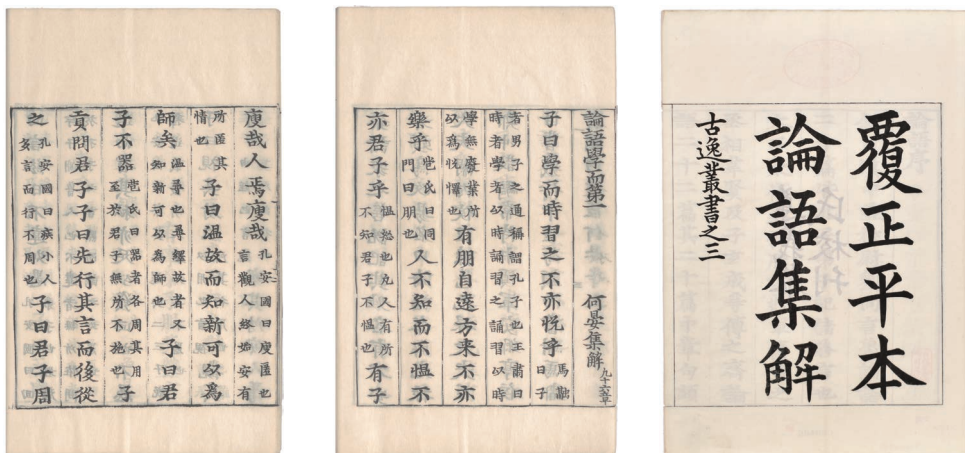 覆正平本
論語集解
古逸叢書之三
論語學而第一 何晏集解 凡十六章
子曰學而時習之不亦悅乎 馬融曰子
者男子之通稱謂孔子也王肅曰時者學者以時誦習之誦習以時
學無廢業所以為悅懌也 有朋自遠方来不亦
樂乎 苞氏曰同門曰朋也 人不知而不愠不
亦君子乎 愠怒也凡人有所不知君子不愠也 有子
廋哉人焉廋哉 孔安國曰廋匿也言觀人終始安有
所匿其情也 子曰温故而知新可以為
師矣 温尋也尋繹故者又知新可以為師也 子曰君
子不器 苞氏曰器者各周其用至於君子無所不施也 子
貢問君子子曰先行其言而後從
之 孔安國曰疾小人多言而行不周也 子曰君子周